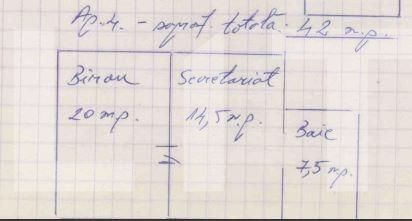 Ap. 4. - supraf. totală: 42 m.p.
Birou
20 mp.
Secretariat
14,5 m.p.
Baie
7,5 mp.